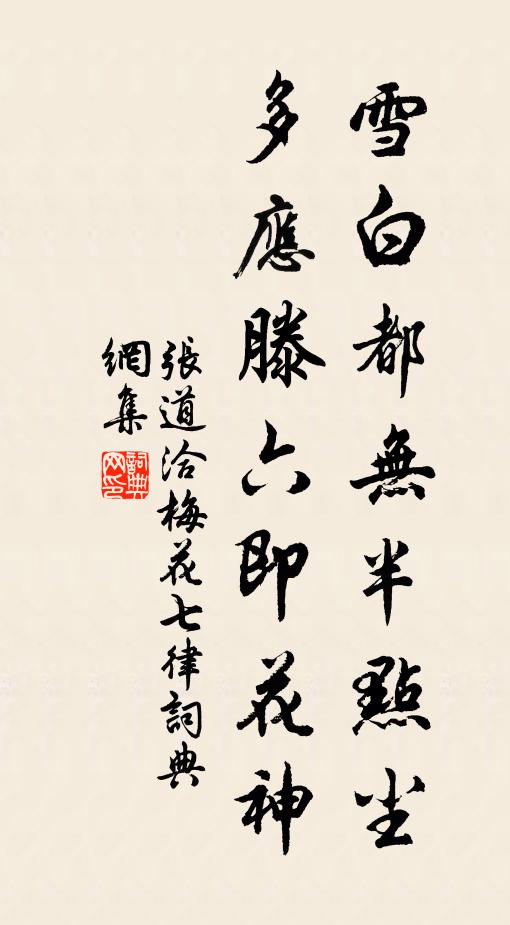 雪白都無半點尘
多應滕六即花神
張道洽梅花七律詞典
網集
詞典网印